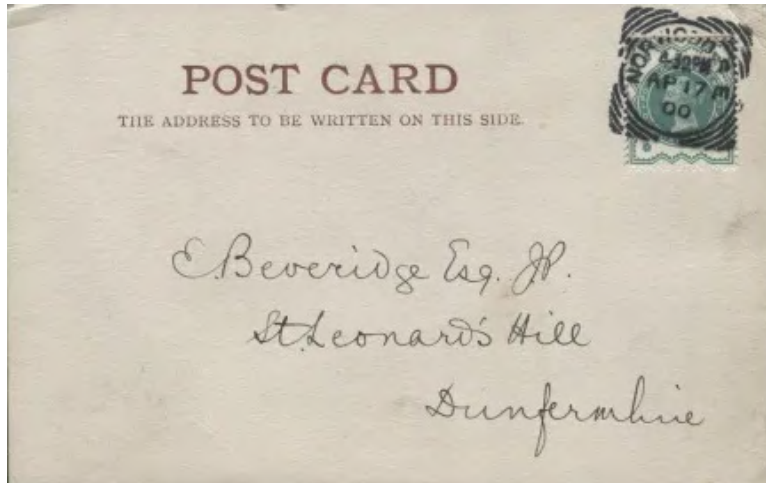 POST CARD
THE ADDRESS TO BE WRITTEN ON THIS SIDE.
NORWICH
4.30PM
AP 17
00
E. Beveridge Esq. JP.
St. Leonard's Hill
Dunfermline